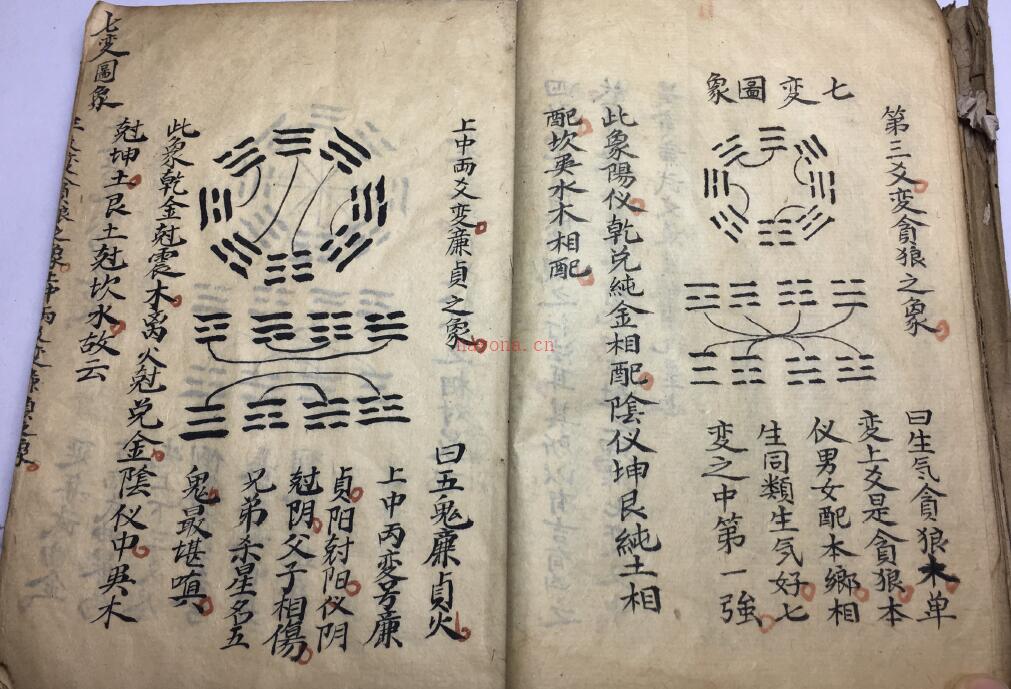 七变圖象
第三爻变貪狼之象
曰生气貪狼木单
变上爻是貪狼本
仪男女配本鄉相
生同類生气好七
变之中第一強
此象陽仪乾兑純金相配陰仪坤艮純土相
配坎巽水木相配
上中两爻变廉貞之象
曰五鬼廉貞火
上中丙变号廉
貞阳尅阳仪阴
尅阴父子相傷
兄弟杀星名五
鬼最堪嗔
此象乾金尅震木离火尅兑金陰仪中巽木
尅坤土艮土尅坎水故云
七变圖象
hayona.cn